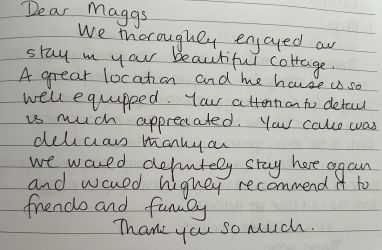 Dear Maggs
We thoroughly enjoyed our
stay in your beautiful cottage.
A great location and the house is so
well equipped. Your attention to detail
is much appreciated. Your cake was
delicious thankyou
We would definitely stay here again
and would highly recommend it to
friends and family
Thank you so much.